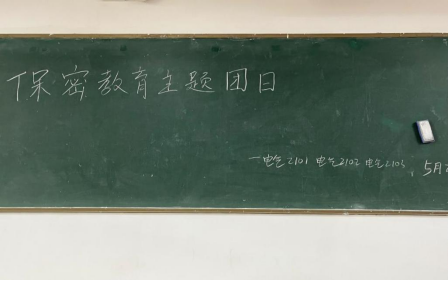 保密教育主题团日
—电气2101 电气2102 电气2103 5月